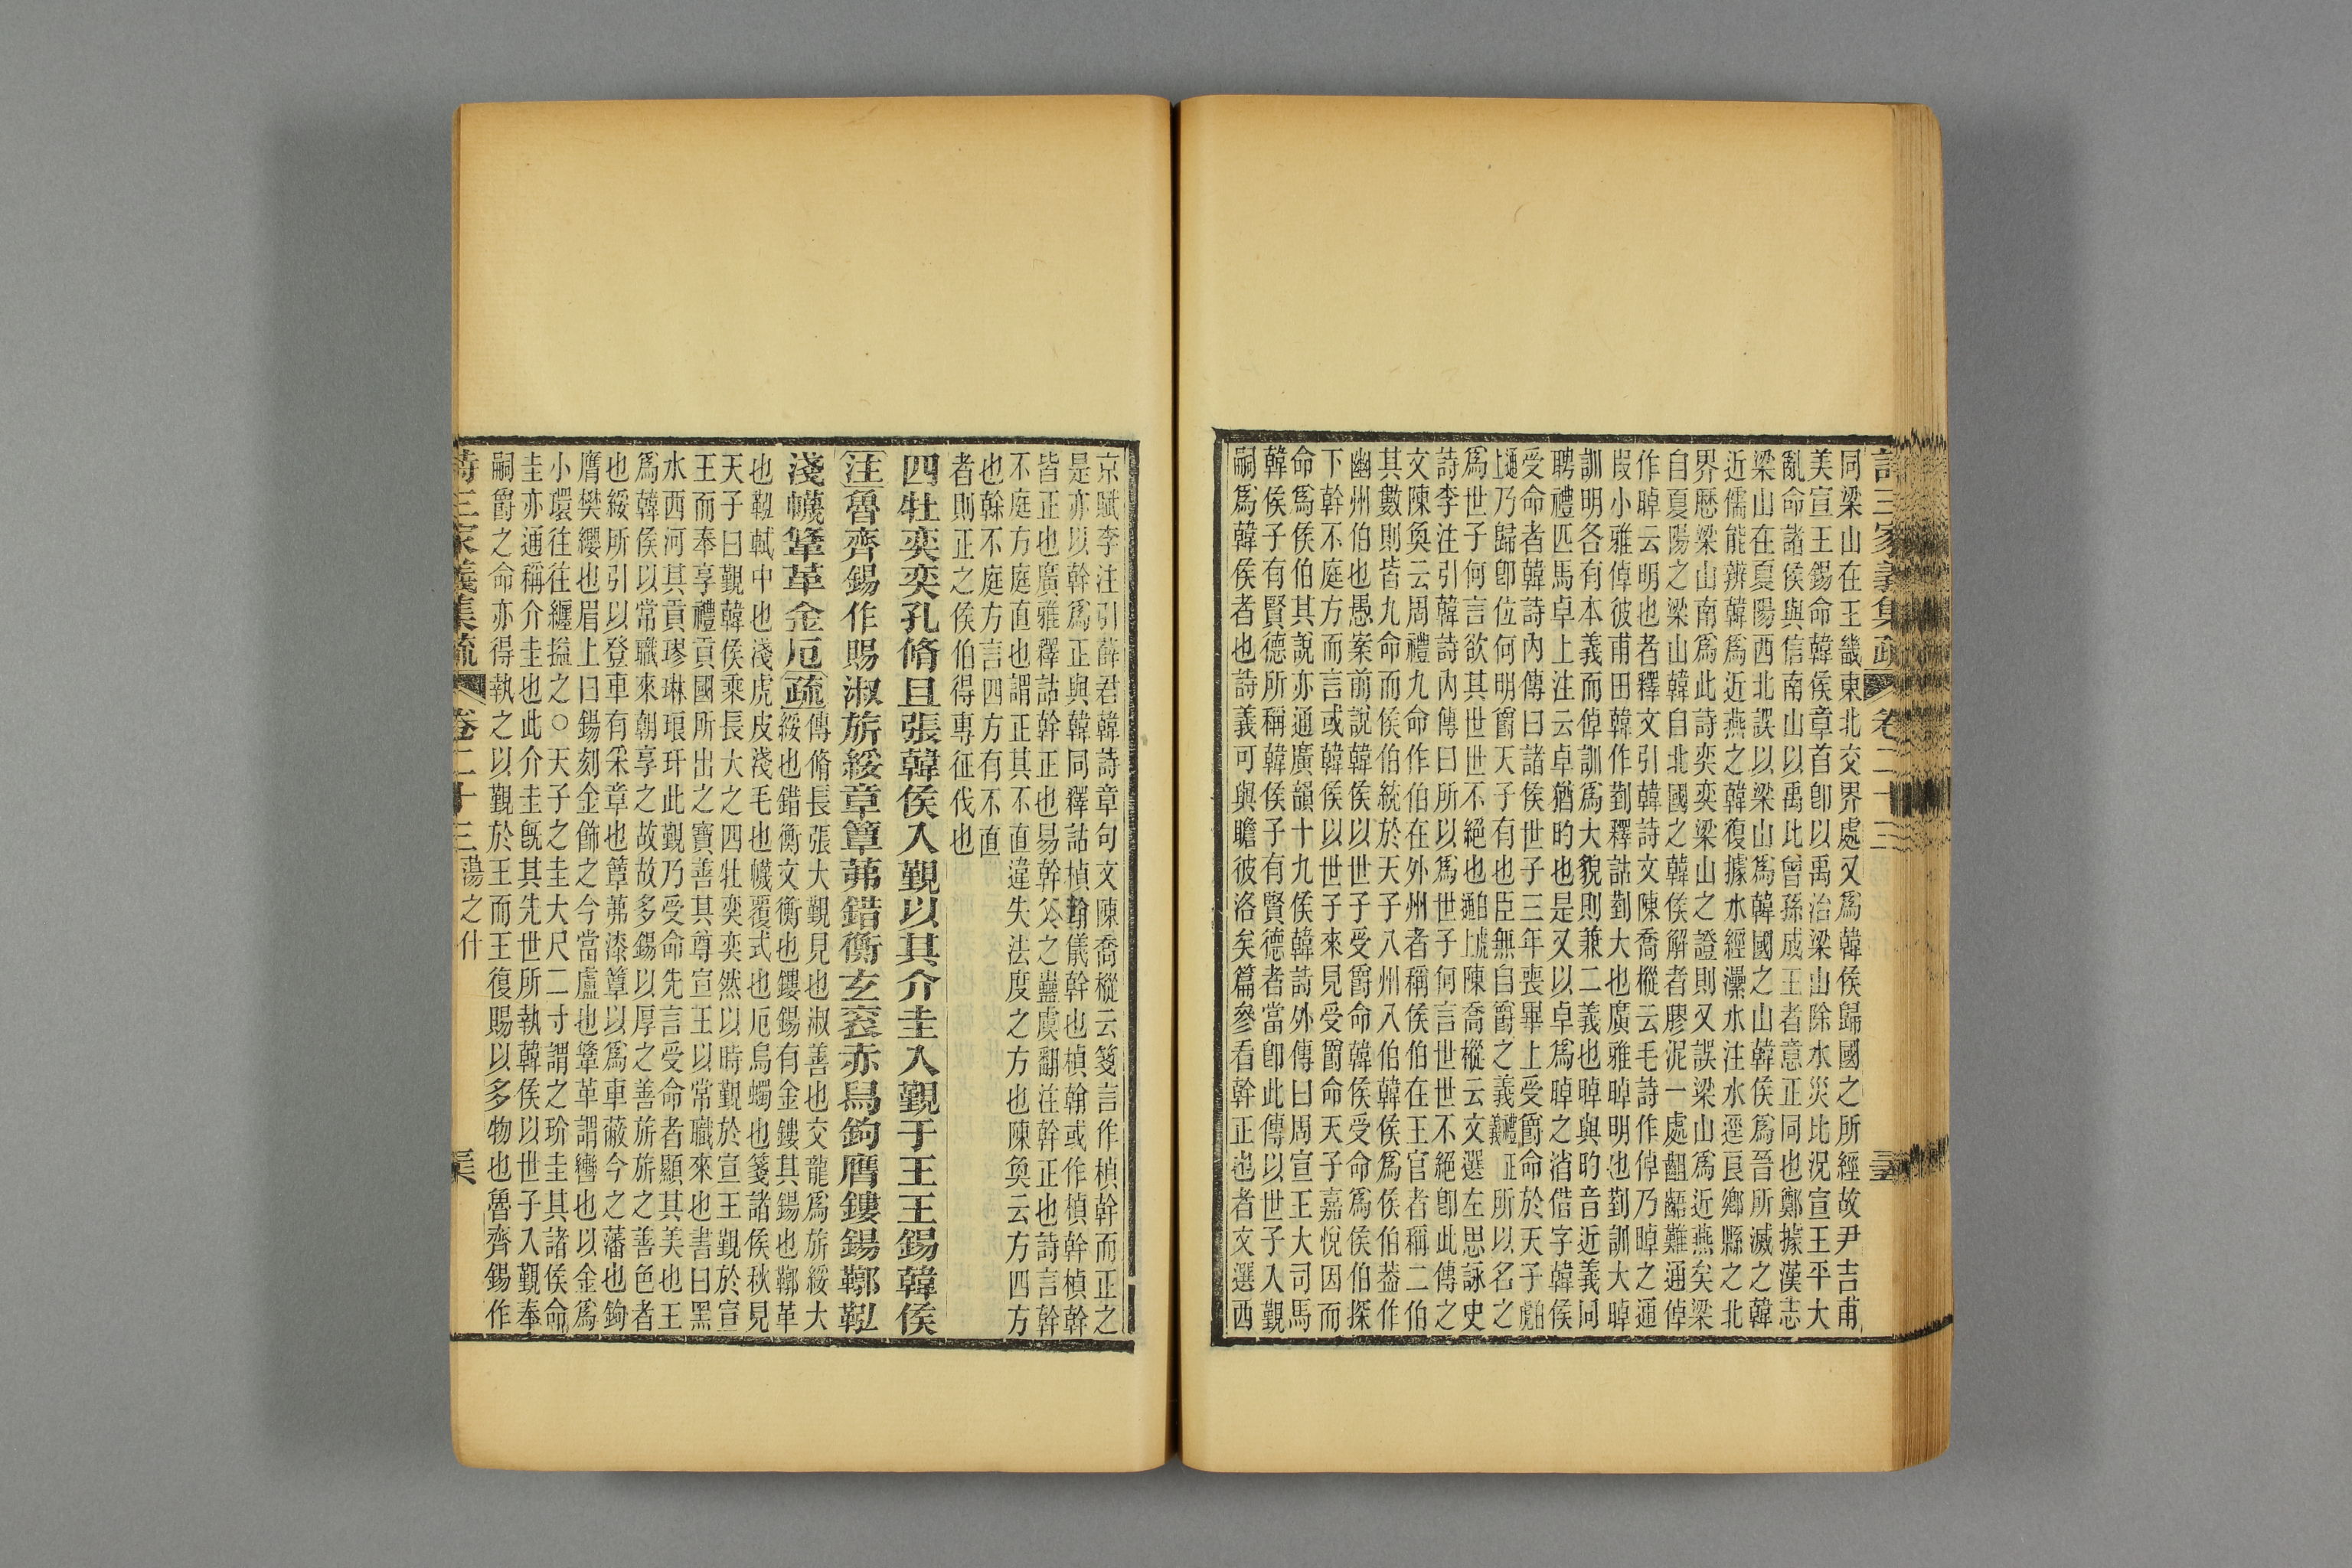 詩三家義集疏 卷二十三
同梁山在王畿東北交界處又爲韓侯歸國之所經故尹吉甫
美宣王錫命韓侯章首卽以禹治梁山除水災比況宣王平大
亂命諸侯與信南山以禹比曾孫成王者意正同也鄭據漢志
梁山在夏陽西北誤以梁山爲韓國之山韓侯爲晉所滅之韓
近儒能辨韓爲近燕之韓復據水經㶟水注水逕良鄉縣之北
界歷梁山南爲此詩奕奕梁山之證則又誤梁山爲近燕矣梁
自夏陽之梁山韓自北國之韓侯解者膠泥一處齟齬難通倬
作晫云明也者釋文引韓詩文陳喬樅云毛詩作倬乃晫之通
叚小雅倬彼甫田韓作菿釋詁菿大也廣雅晫明也菿訓大晫
訓明各有本義而倬訓爲大貌則兼二義也晫與旳音近義同
聘禮匹馬卓上注云卓猶旳也是又以卓爲晫之渻借字韓侯
受命者韓詩內傳曰諸侯世子三年喪畢上受爵命於天子虎通
乃歸卽位何明爵天子有也臣無自爵之義所以名之
爲世子何言欲其世世不絕也陳喬樅云文選左思詠史
詩李注引韓詩內傳曰所以爲世子何言世世不絕卽此傳之
文陳奐云周禮九命作伯在外州者稱侯伯在王官者稱二伯
其數則皆九命而侯伯統於天子八州八伯韓侯爲侯伯葢作
幽州伯也愚案前說韓侯以世子受爵命韓侯受命爲侯伯探
下幹不庭方而言或韓侯以世子來見受爵命天子嘉悅因而
命爲侯伯其說亦通廣韻十九侯韓詩外傳曰周宣王大司馬
韓侯子有賢德所稱韓侯子有賢德者當卽此傳以世子入覲
嗣爲韓侯者也詩義可與瞻彼洛矣篇參看幹正也者文選西
京賦李注引薛君韓詩章句文陳喬樅云箋言作楨幹而正之
是亦以幹爲正與韓同釋詁楨翰儀幹也楨翰或作楨幹楨幹
皆正也廣雅釋詁幹正也易幹父之蠱虞翻注幹正也詩言幹
不庭方庭直也謂正其不直違失法度之方也陳奐云方四方
也榦不庭方言四方有不直
者則正之侯伯得專征伐也
四牡奕奕孔脩且張韓侯入覲以其介圭入覲于王王錫韓侯
注魯齊錫作賜淑旂綏章簟茀錯衡玄袞赤舄鉤膺鏤鍚鞹鞃
淺幭鞗革金厄疏傳脩長張大覲見也淑善也交龍爲旂綏大
綏也錯衡文衡也鏤鍚有金鏤其鍚也鞹革
也鞃軾中也淺虎皮淺毛也幭覆式也厄烏蠋也箋諸侯秋見
天子曰覲韓侯乘長大之四牡奕奕然以時覲於宣王覲於宣
王而奉享禮貢國所出之寶善其尊宣王以常職來也書曰黑
水西河其貢璆琳琅玕此覲乃受命先言受命者顯其美也王
爲韓侯以常職來朝享之故故多錫以厚之善旂旂之善色者
也綏所引以登車有采章也簟茀漆簟以爲車蔽今之藩也鉤
膺樊纓也眉上曰鍚刻金飾之今當盧也鞗革謂轡也以金爲
小環往往纏搤之○天子之圭大尺二寸謂之玠圭其諸侯命
圭亦通稱介圭也此介圭旣其先世所執韓侯以世子入覲奉
嗣爵之命亦得執之以覲於王而王復賜以多物也魯齊錫作
詩三家義集疏 卷二十三 蕩之什